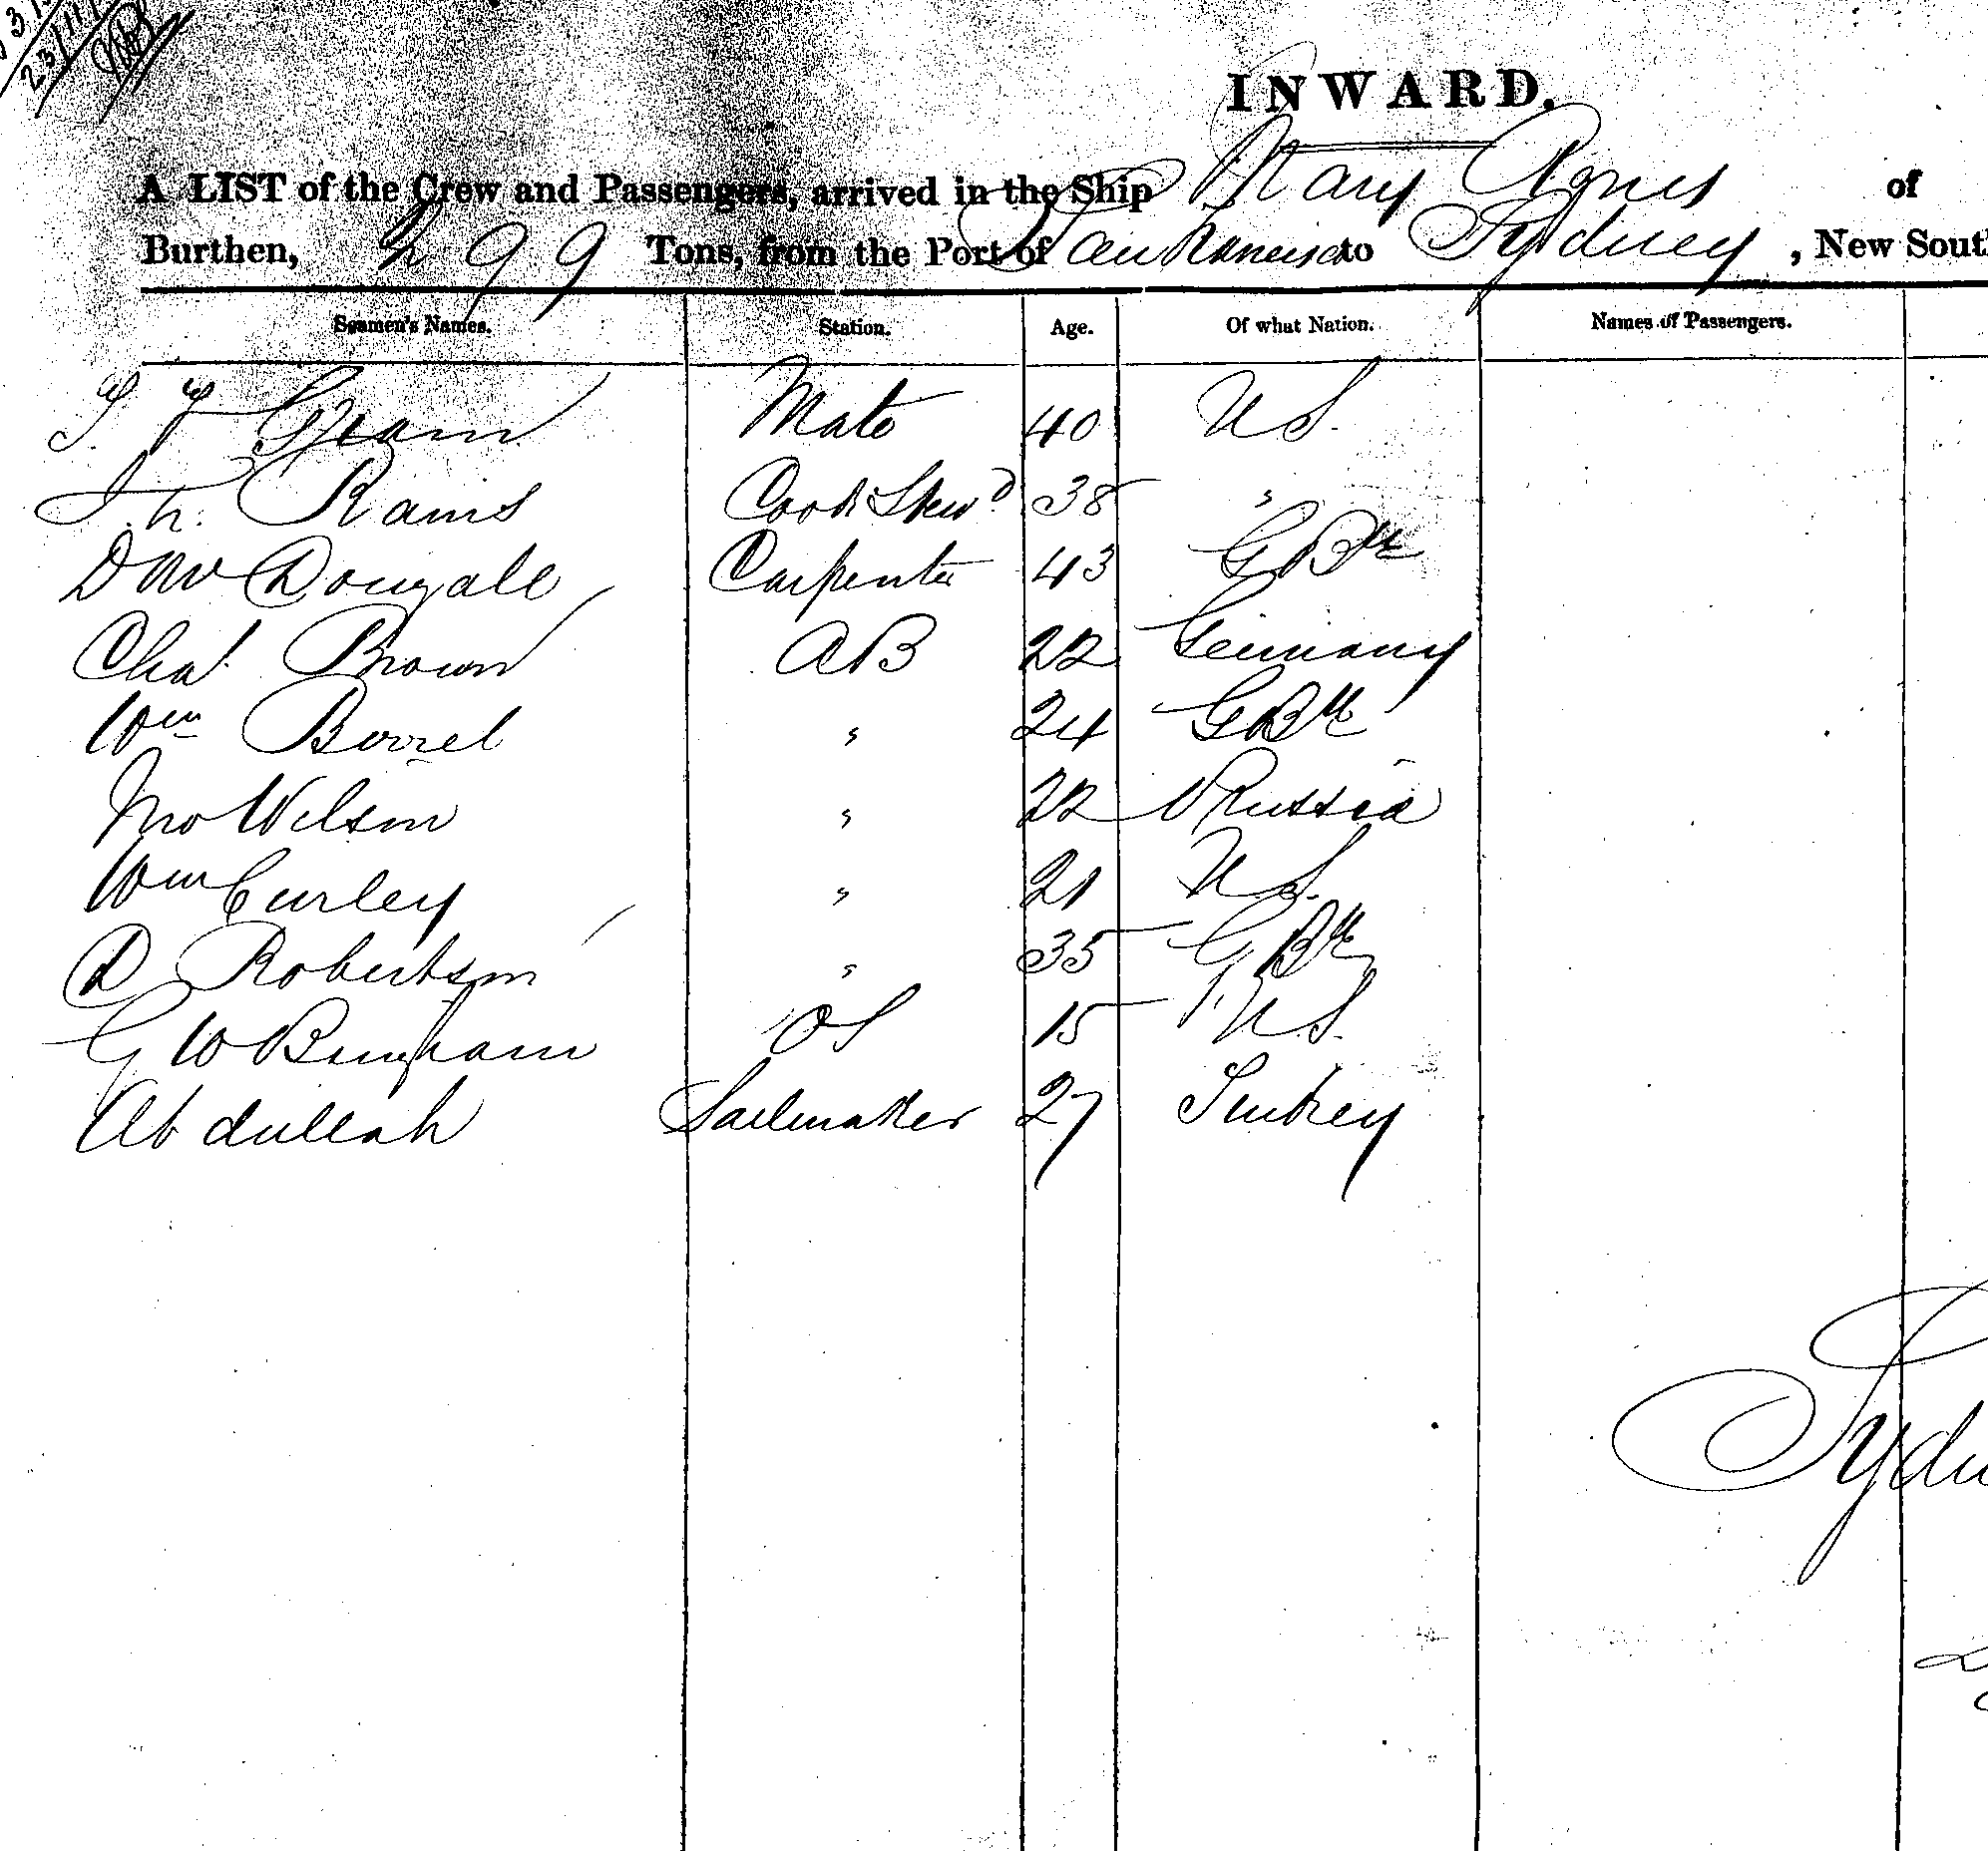 INWARD.
A LIST of the Crew and Passengers, arrived in the Ship Mary Agnes of
Burthen, 299 Tons, from the Port of San Francisco to Sydney, New Sout
Seamen's Names. Station. Age. Of what Nation. Names of Passengers.
Mate 40 U S.
Rains Cook & Stewd 38 "
D Mc Dougall Carpenter 43 G Bn
Chas Brown A B 22 Germany
Wm " 24 G Bn
Jno Wilson " 22 Russia
Wm Curley " 21 U S.
D Robertson " 35 G Bn
G W Bingham O S 15 U S.
Abdullah Sailmaker 27 Turkey
Sydn